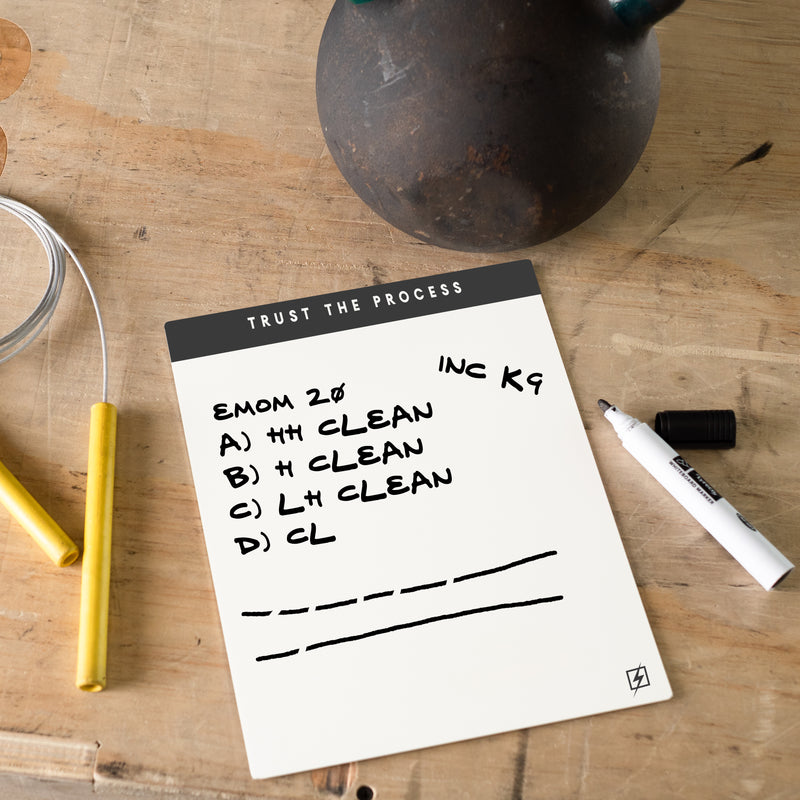 TRUST THE PROCESS
INC KG
EMOM 20
A) HH CLEAN
B) H CLEAN
C) LH CLEAN
D) CL
WHITEBOARD MARKER